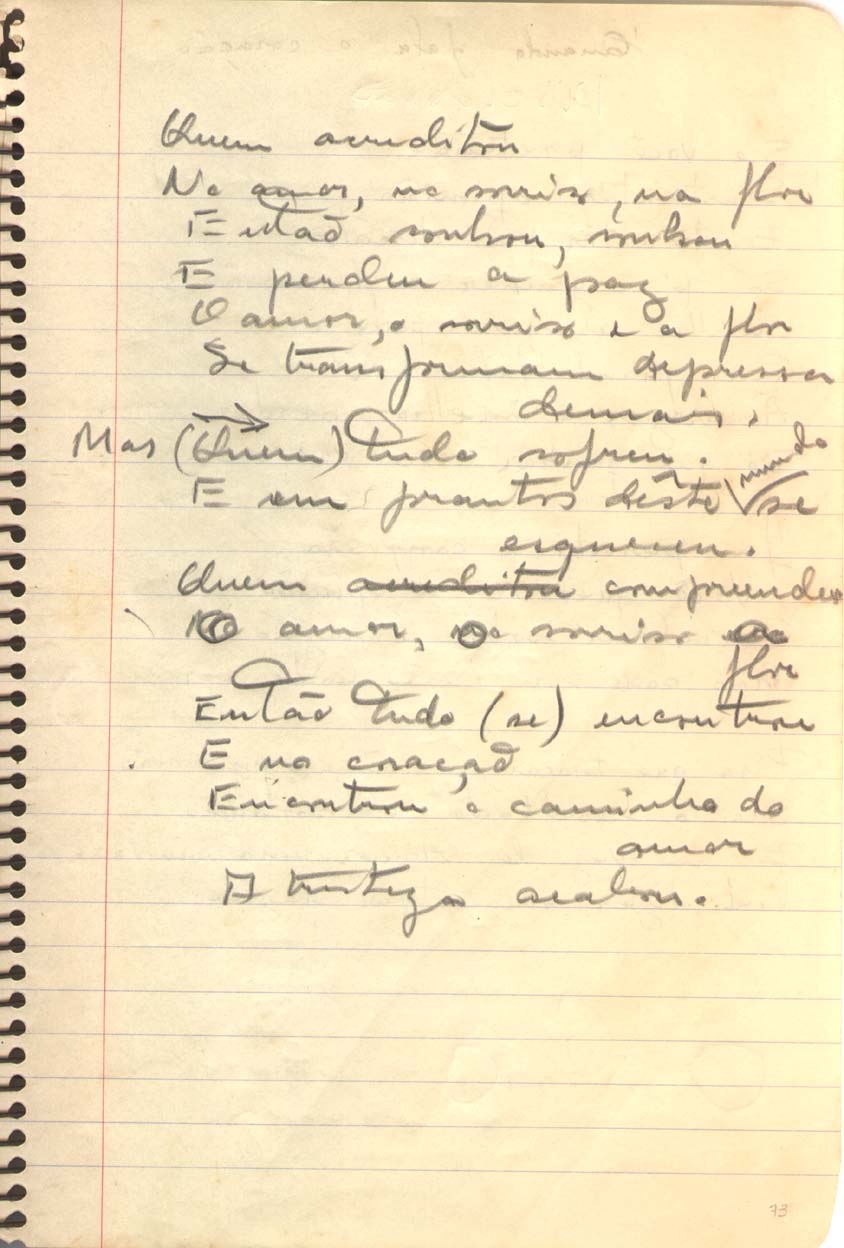 Quem acreditou
No amor, no sorriso, na flor
Então sonhou, sonhou
E perdeu a paz
O amor, o sorriso e a flor
Se transformam depressa
demais.
Mas (Quem) tudo sofreu.
E em prantos dêste mundo se
esqueceu.
Quem acreditou compreendeu
O amor, o sorriso
flor
Então tudo (se) encontrou
E no coração
Encontrou o caminho do
amor
A tristeza acabou.
73